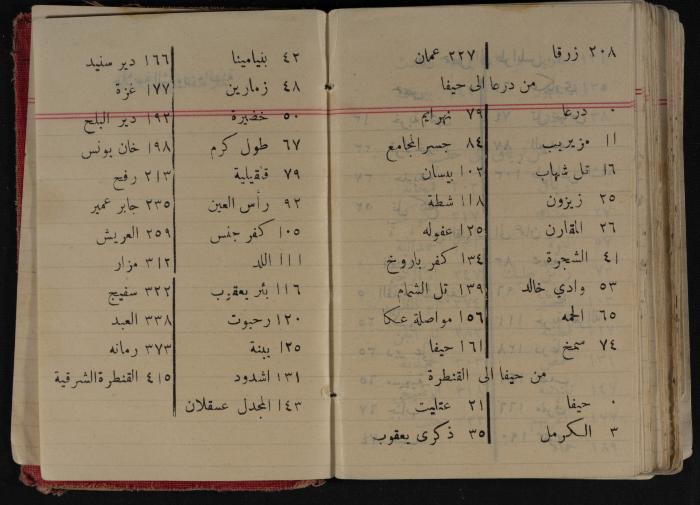 ٢٠٨ زرقا ٢٢٧ عمان
من درعا الى حيفا
٠ درعا ٧٩ نهرايم
١١ مزيريب ٨٤ جسر المجامع
١٦ تل شهاب ١٠٢ بيسان
٢٥ زيزون ١١٨ شطة
٢٦ المقارن ١٢٥ عفوله
٤١ الشجرة ١٣٤ كفر باروخ
٥٣ وادي خالد ١٣٩ تل الشمام
٦٥ الحمه ١٥٦ مواصلة عكا
٧٤ سمخ ١٦١ حيفا
من حيفا الى القنطرة
٠ حيفا ٢١ عتليت
٣ الكرمل ٣٥ ذكرى يعقوب
٤٢ بنيامينا ١٦٦ دير سنيد
٤٨ زمارين ١٧٧ غزة
٥٠ خضيرة ١٩٢ دير البلح
٦٧ طول كرم ١٩٨ خان يونس
٧٩ قلقيلية ٢١٣ رفح
٩٢ رأس العين ٢٣٥ جابر عمير
١٠٥ كفر جنس ٢٥٩ العريش
١١١ اللد ٣١٢ مزار
١١٦ بئر يعقوب ٣٢٢ سفيج
١٢٠ رحبوت ٣٣٨ العبد
١٢٥ يبنة ٣٧٣ رمانه
١٣١ اشدود ٤١٥ القنطرة الشرقية
١٤٣ المجدل عسقلان